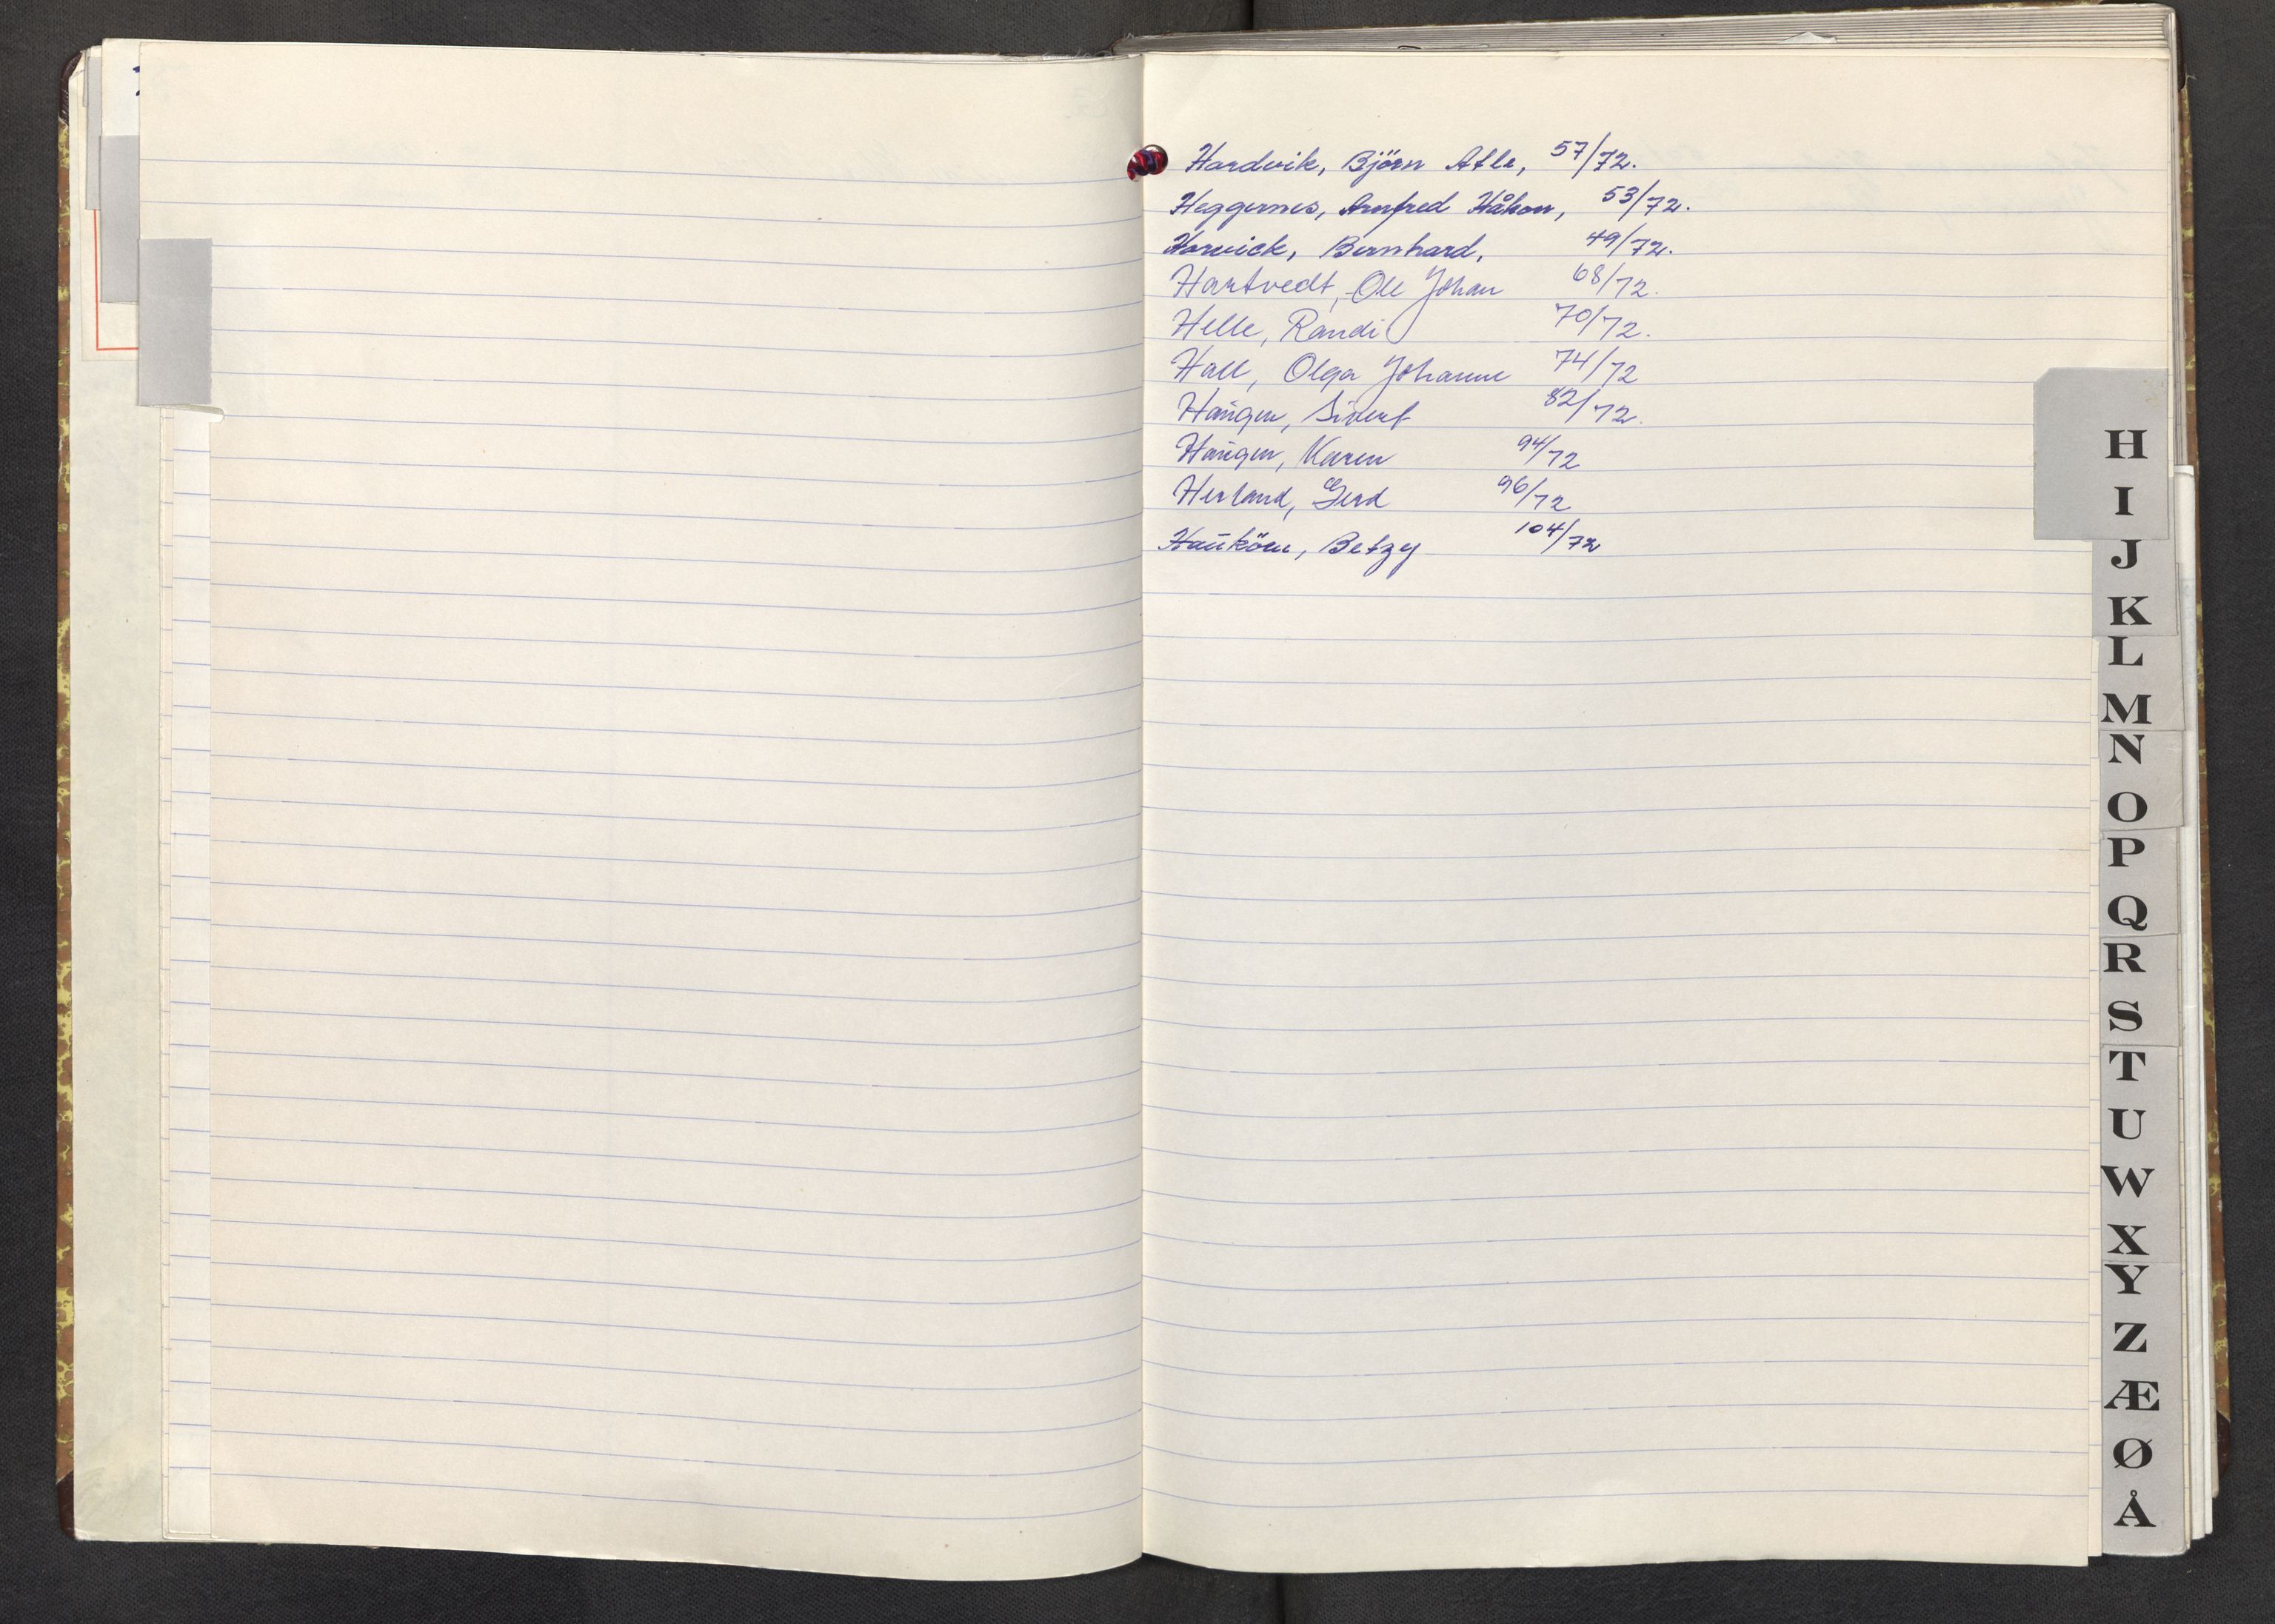 Hardvik, Björn Atle, 57/72.
Heggernes, Arnfred Håkon, 53/72.
Horvick, Bernhard, 49/72.
Hartvedt, Ole Johan 68/72.
Helle, Randi 70/72.
Hall, Olga Johanne 74/72
Haŭgen, Sivert 82/72.
Haŭgen, Karen 94/72
Herland, Gerd 96/72
Haŭköen, Betzy 104/72
H
I
J
K
L
M
N
O
P
Q
R
S
T
U
W
X
Y
Z
Æ
Ø
Å